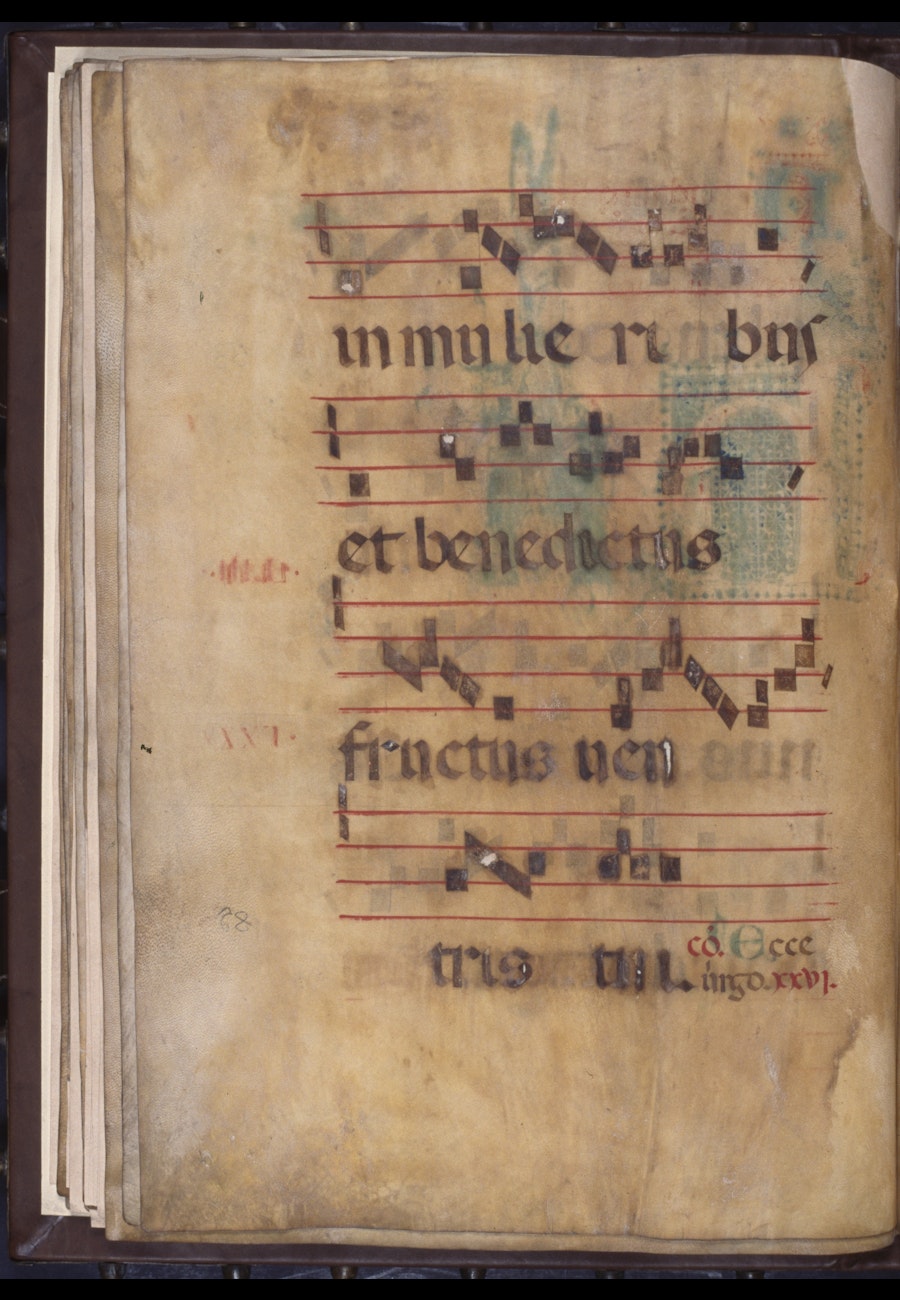 in mulie ri bus
et benedictus
fructus uen
tris tui. cõ. Ecce
uirgo. xxvj.